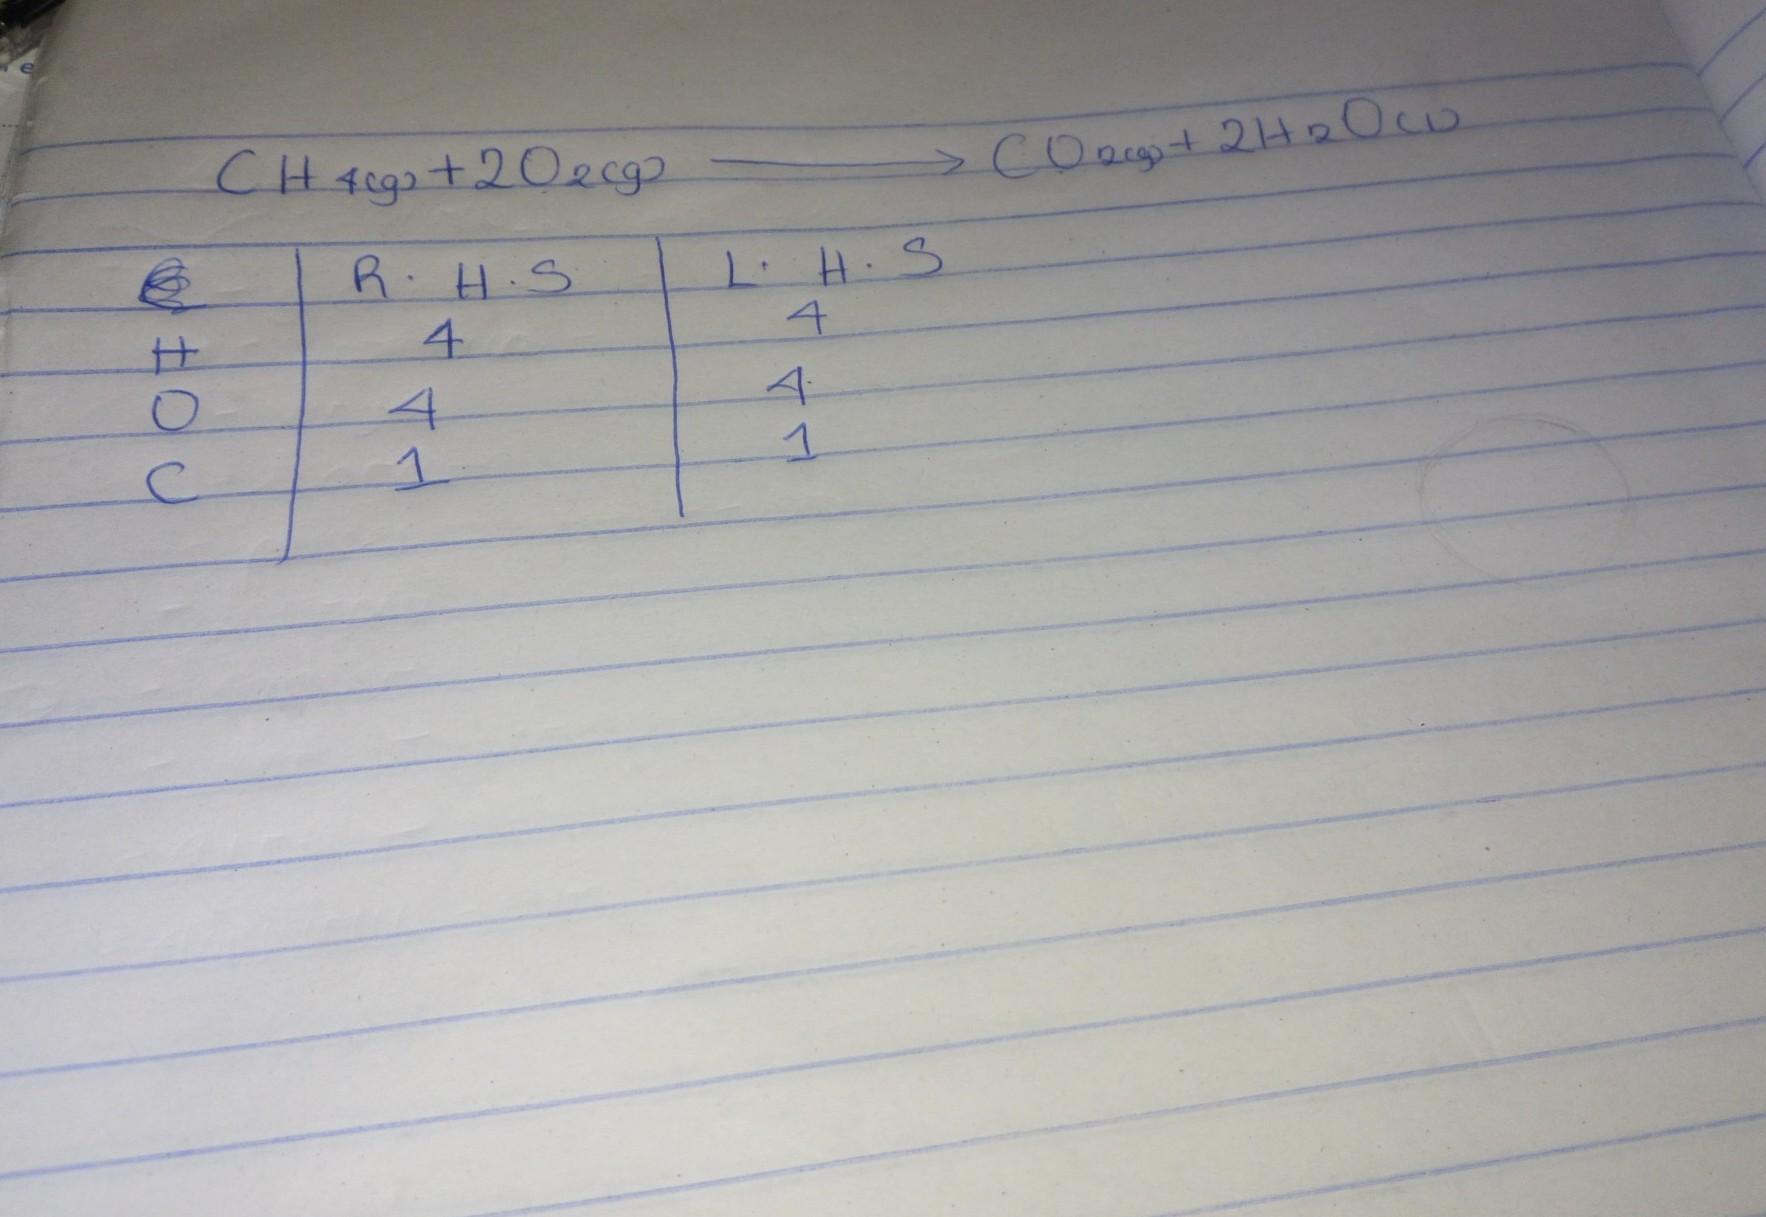 CH4(g) + 2O2(g) ⟶ CO2(g) + 2H2O(l)
R. H. S L. H. S
H 4 4
O 4 4
C 1 1